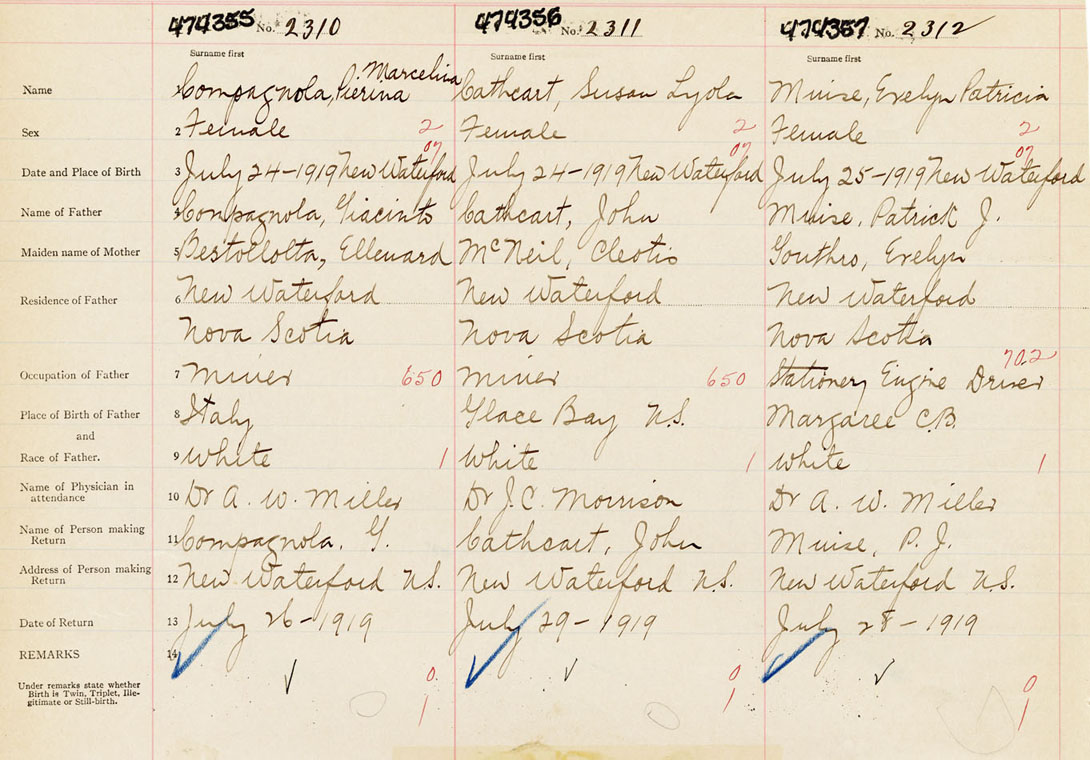 474355 No. 2310 474356 No. 2311 474357 No. 2312
Surname first Surname first Surname first
Marcelina
Name 1 Compagnola, Pierina Cathcart, Susan Lyola Muise, Evelyn Patricia
Sex 2 Female 2 Female 2 Female 2
07 07 07
Date and Place of Birth 3 July 24-1919 New Waterford July 24-1919 New Waterford July 25-1919 New Waterford
Name of Father 4 Compagnola, Giacinto Cathcart, John Muise, Patrick J.
Maiden name of Mother 5 Bestollotta, Elleward McNeil, Cleotis Gouthro, Evelyn
Residence of Father 6 New Waterford New Waterford New Waterford
Nova Scotia Nova Scotia Nova Scotia
702
Occupation of Father 7 Miner 650 Miner 650 Stationery Engine Driver
Place of Birth of Father 8 Italy Glace Bay N.S. Margaree C.B.
and
Race of Father. 9 White 1 White 1 White 1
Name of Physician in
attendance 10 Dr A. W. Miller Dr J.C. Morrison Dr A. W. Miller
Name of Person making
Return 11 Compagnola, G. Cathcart, John Muise, P. J.
Address of Person making
Return 12 New Waterford N.S. New Waterford N.S. New Waterford N.S.
Date of Return 13 July 26-1919 July 29-1919 July 28-1919
REMARKS 14
Under remarks state whether 0 0 0
Birth is Twin, Triplet, Ille-
gitimate or Still-birth. 1 1 1